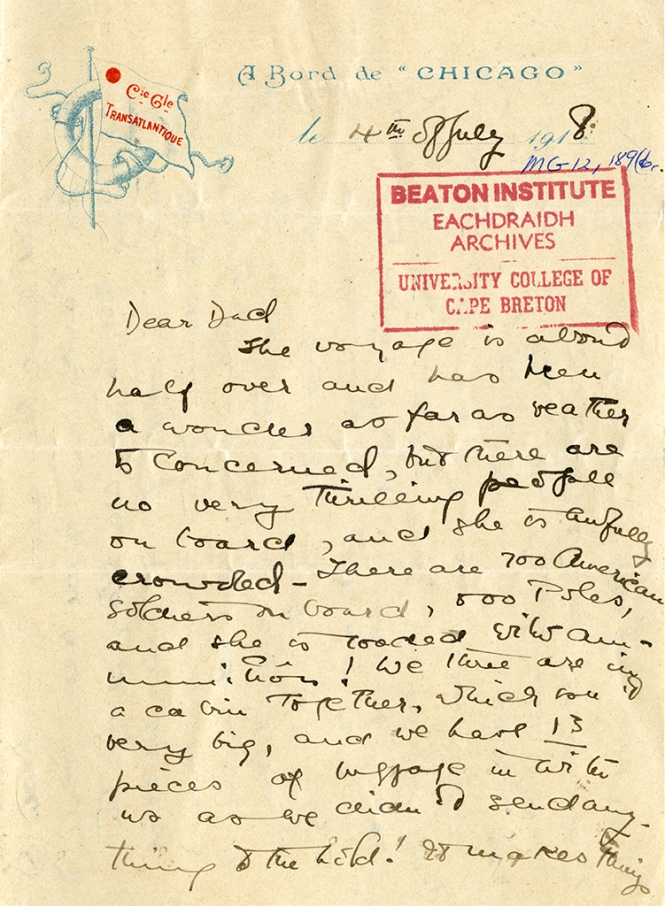 Cie Gle
TRANSATLANTIQUE
A Bord de "CHICAGO"
le 4th of July 1918
MG 12, 189
BEATON INSTITUTE
EACHDRAIDH
ARCHIVES
UNIVERSITY COLLEGE OF
CAPE BRETON
Dear Dad
The voyage is about
half over and has been
a wonder as far as weather
is concerned, but there are
no very thrilling people
on board, and she is awfully
crowded - There are 700 American
soldiers on board, 500 Poles,
and she is loaded with am-
munition! We three are in
a cabin together, which isn't
very big, and we have 13
pieces of luggage in with
us as we didn't send any-
thing to the hold! It makes things